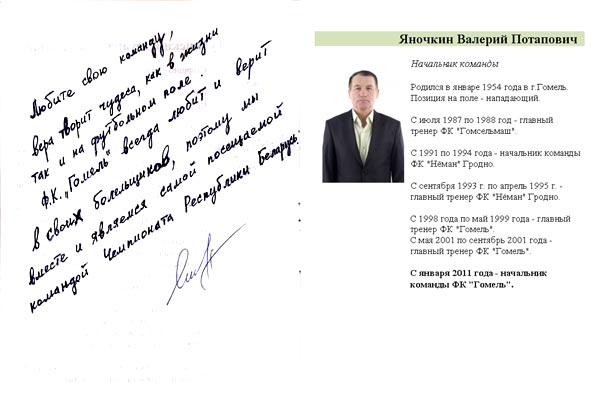 Любите свою команду,
вера творит чудеса, как в жизни
так и на футбольном поле.
Ф.К. „Гомель" всегда любит и верит
в своих болельщиков, поэтому мы
вместе и являемся самой посещаемой
командой Чемпионата Республики Беларусь.
Яночкин Валерий Потапович
Начальник команды
Родился в январе 1954 года в г.Гомель.
Позиция на поле - нападающий.
С июля 1987 по 1988 год - главный
тренер ФК "Гомсельмаш".
С 1991 по 1994 года - начальник команды
ФК "Нёман" Гродно.
С сентября 1993 г. по апрель 1995 г. -
главный тренер ФК "Нёман" Гродно.
С 1998 года по май 1999 года - главный
тренер ФК "Гомель".
С мая 2001 по сентябрь 2001 года -
главный тренер ФК "Гомель".
С января 2011 года - начальник
команды ФК "Гомель".